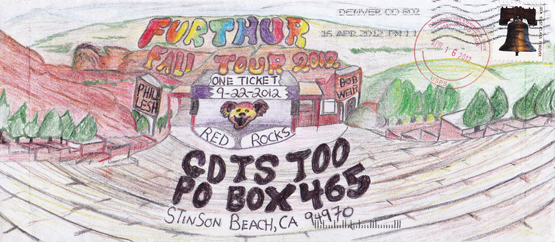 DENVER CO 802
15 APR 2012 PM 1 1
FURTHUR
FALL TOUR 2012
ONE TICKET
9-22-2012
PHIL
LESH
BOB
WEIR
RED ROCKS
GDTS TOO
PO BOX 465
STINSON BEACH, CA 94970